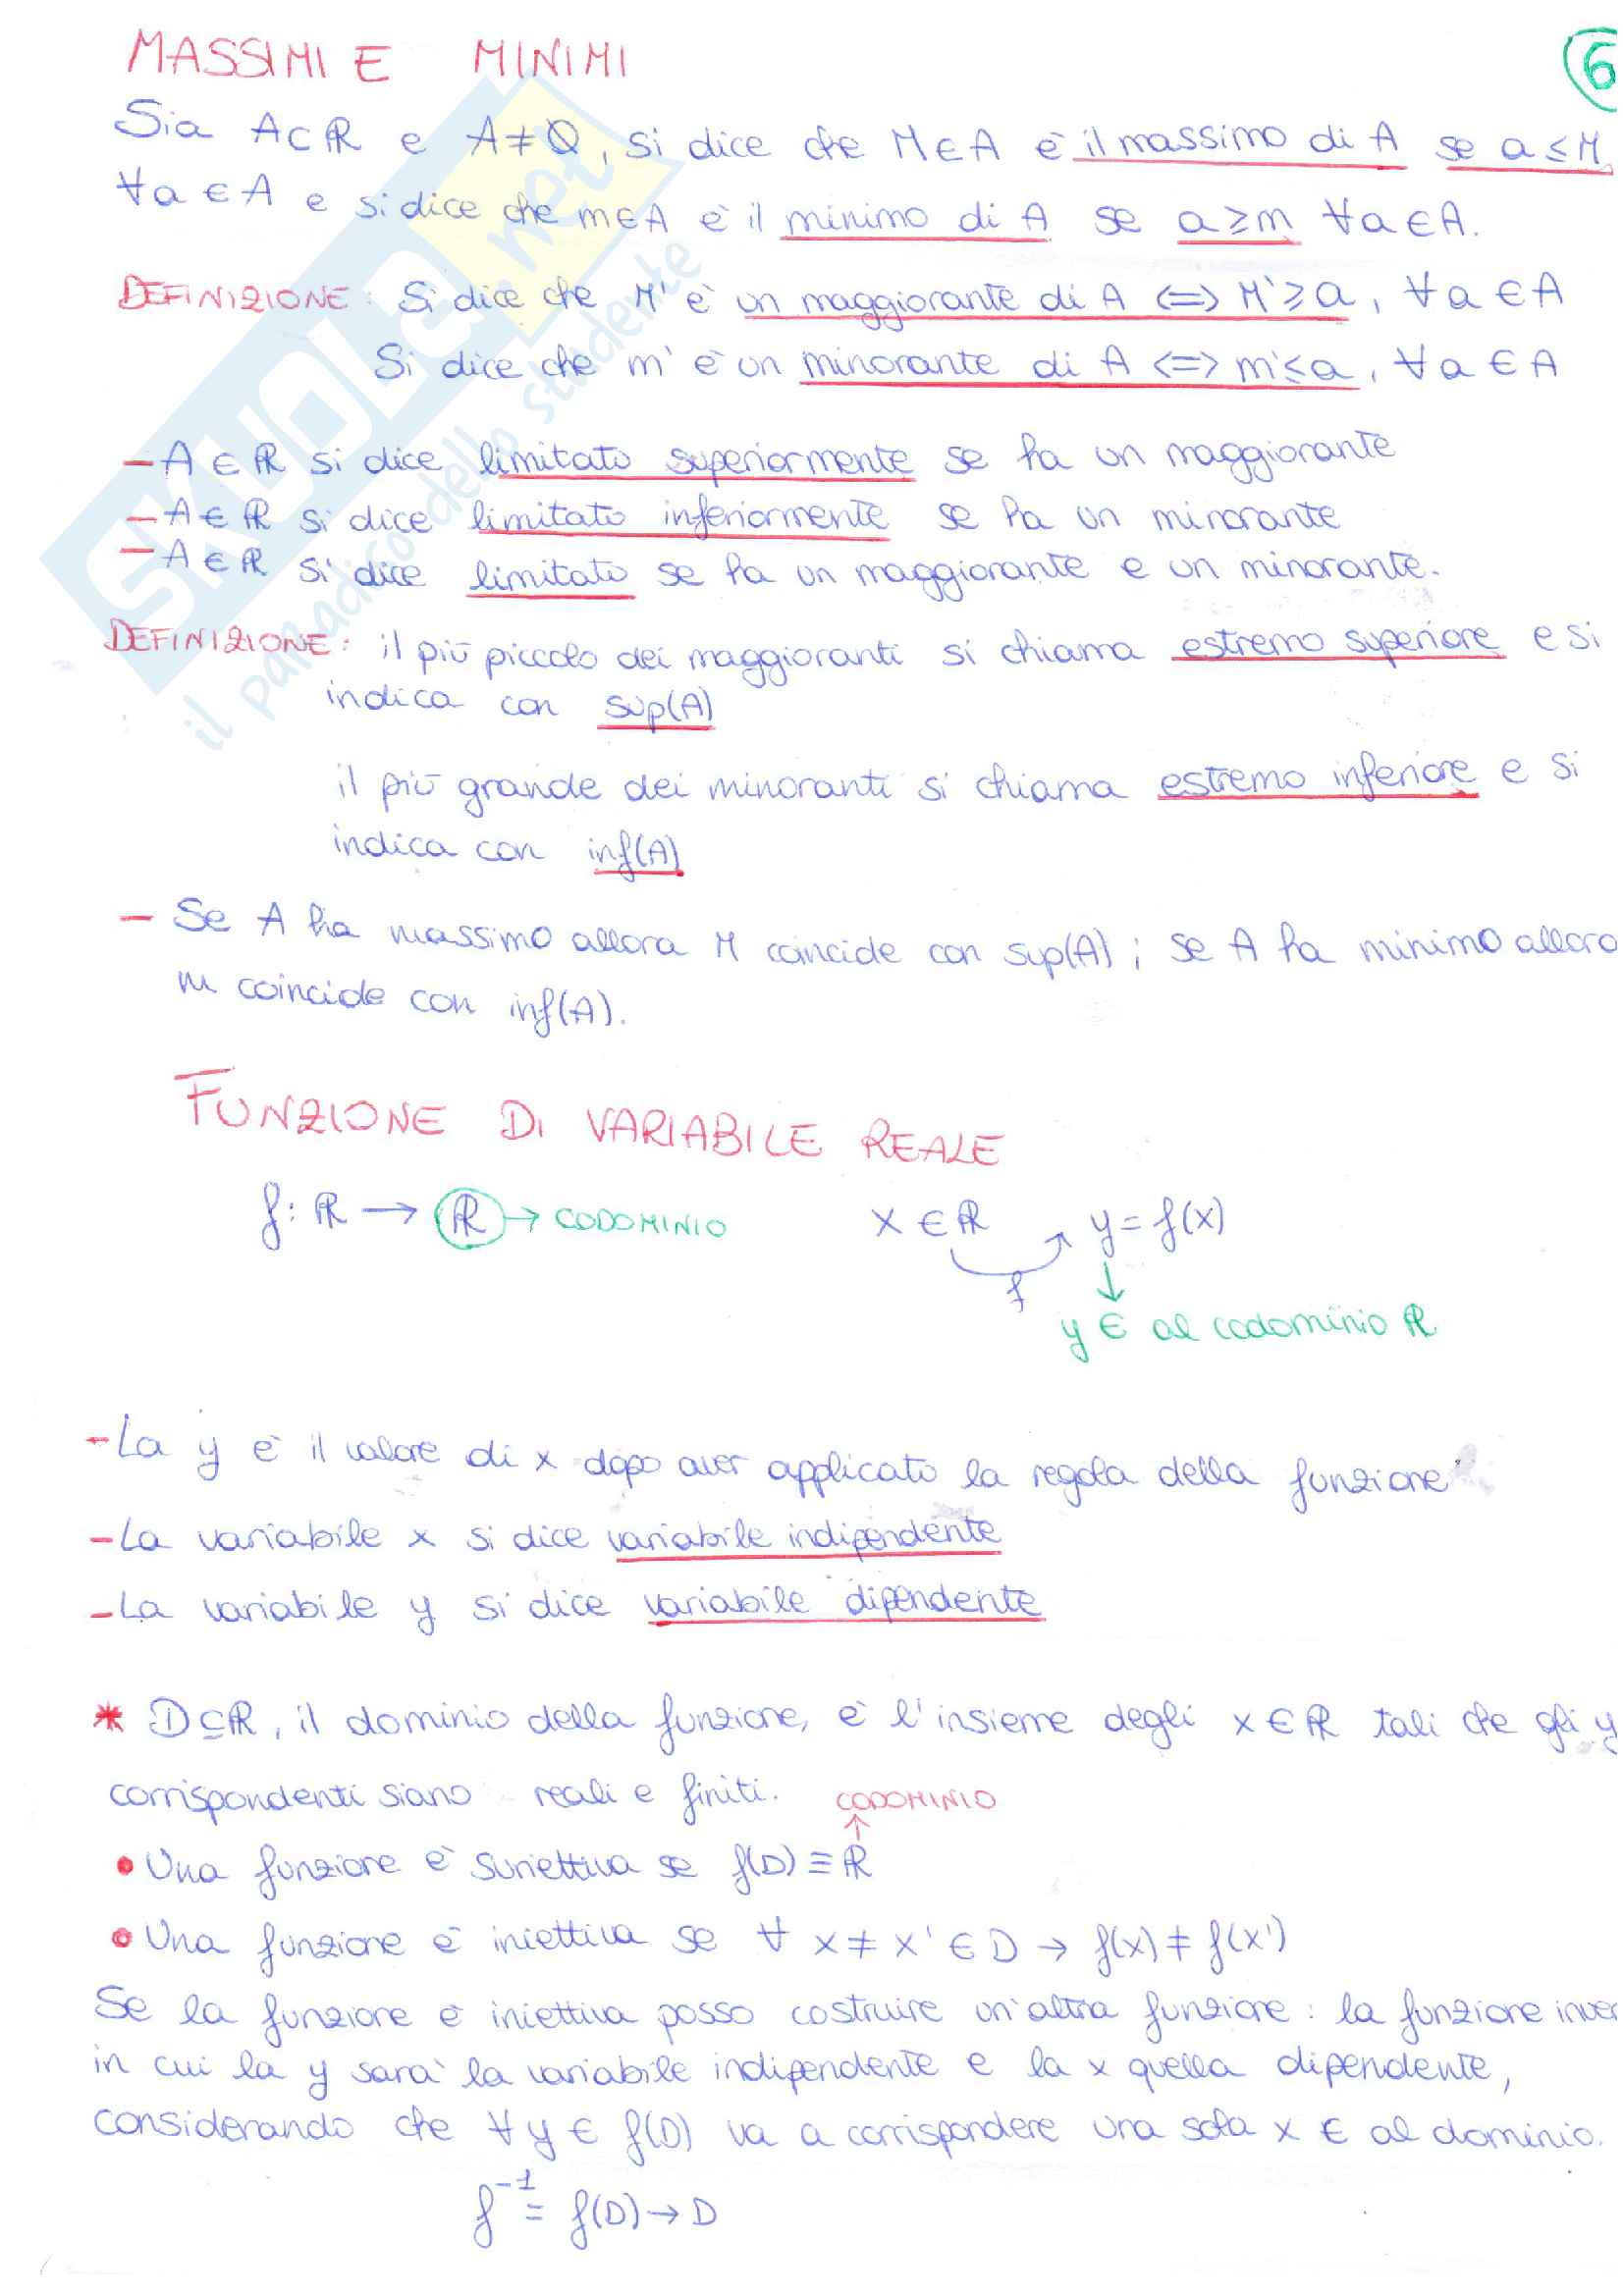 MASSIMI E MINIMI
6
Sia A⊂ℝ e A≠∅, si dice che M∈A è il massimo di A se a≤M
∀a∈A e si dice che m∈A è il minimo di A se a≥m ∀a∈A.
DEFINIZIONE: Si dice che M' è un maggiorante di A <=> M'≥a, ∀a∈A
Si dice che m' è un minorante di A <=> m'≤a, ∀a∈A
- A∈ℝ si dice limitato superiormente se ha un maggiorante
- A∈ℝ si dice limitato inferiormente se ha un minorante
- A∈ℝ si dice limitato se ha un maggiorante e un minorante.
DEFINIZIONE: il più piccolo dei maggioranti si chiama estremo superiore e si
indica con sup(A)
il più grande dei minoranti si chiama estremo inferiore e si
indica con inf(A)
- Se A ha massimo allora M coincide con sup(A); se A ha minimo allora
m coincide con inf(A).
FUNZIONE DI VARIABILE REALE
f: ℝ → ℝ → CODOMINIO x∈ℝ y=f(x)
f
y ∈ al codominio ℝ
- La y è il valore di x dopo aver applicato la regola della funzione
- La variabile x si dice variabile indipendente
- La variabile y si dice variabile dipendente
* D⊆ℝ, il dominio della funzione, è l'insieme degli x∈ℝ tali che gli y
corrispondenti siano reali e finiti.
CODOMINIO
• Una funzione è suriettiva se f(D)≡ℝ
• Una funzione è iniettiva se ∀ x≠x'∈D → f(x)≠f(x')
Se la funzione è iniettiva posso costruire un'altra funzione: la funzione inver
in cui la y sarà la variabile indipendente e la x quella dipendente,
considerando che ∀y∈f(D) va a corrispondere una sola x ∈ al dominio.
f⁻¹= f(D)→D
SKUOLA.net
il paradiso dello studente